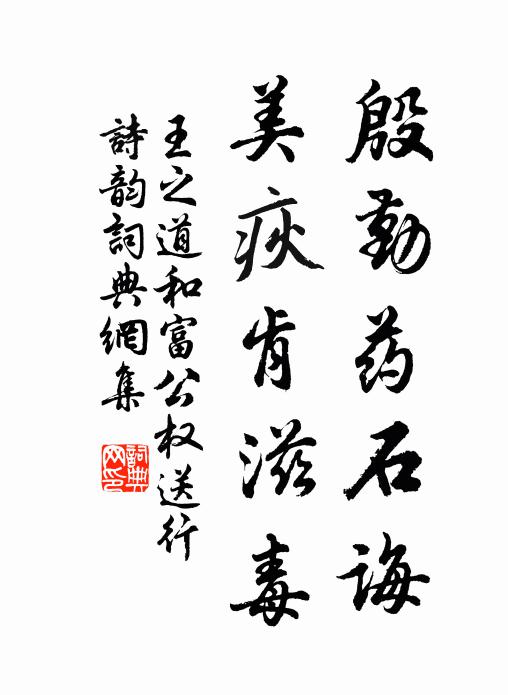 殷勤药石诲
美疢肯滋毒
王之道和富公权送行
詩韵詞典網集
詞典网印